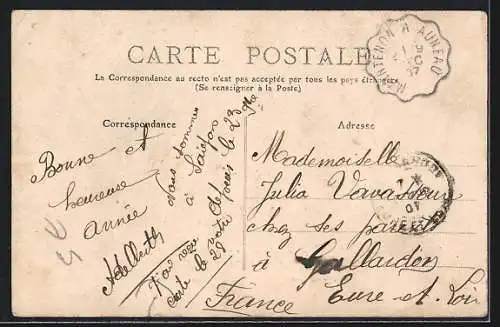 CARTE POSTALE
La Correspondance au recto n'est pas acceptée par tous les pays étrangers
(Se renseigner à la Poste)
Correspondance
Adresse
Bonne et
heureuse
année
nous sommes
à Saïgon
depuis le 23
J'ai reçu
carte le
29
Mademoiselle
Julia Vavasseur
chez ses parents
à Gallardon
Eure-et-Loir
France
MAINTENON A AUNEAU